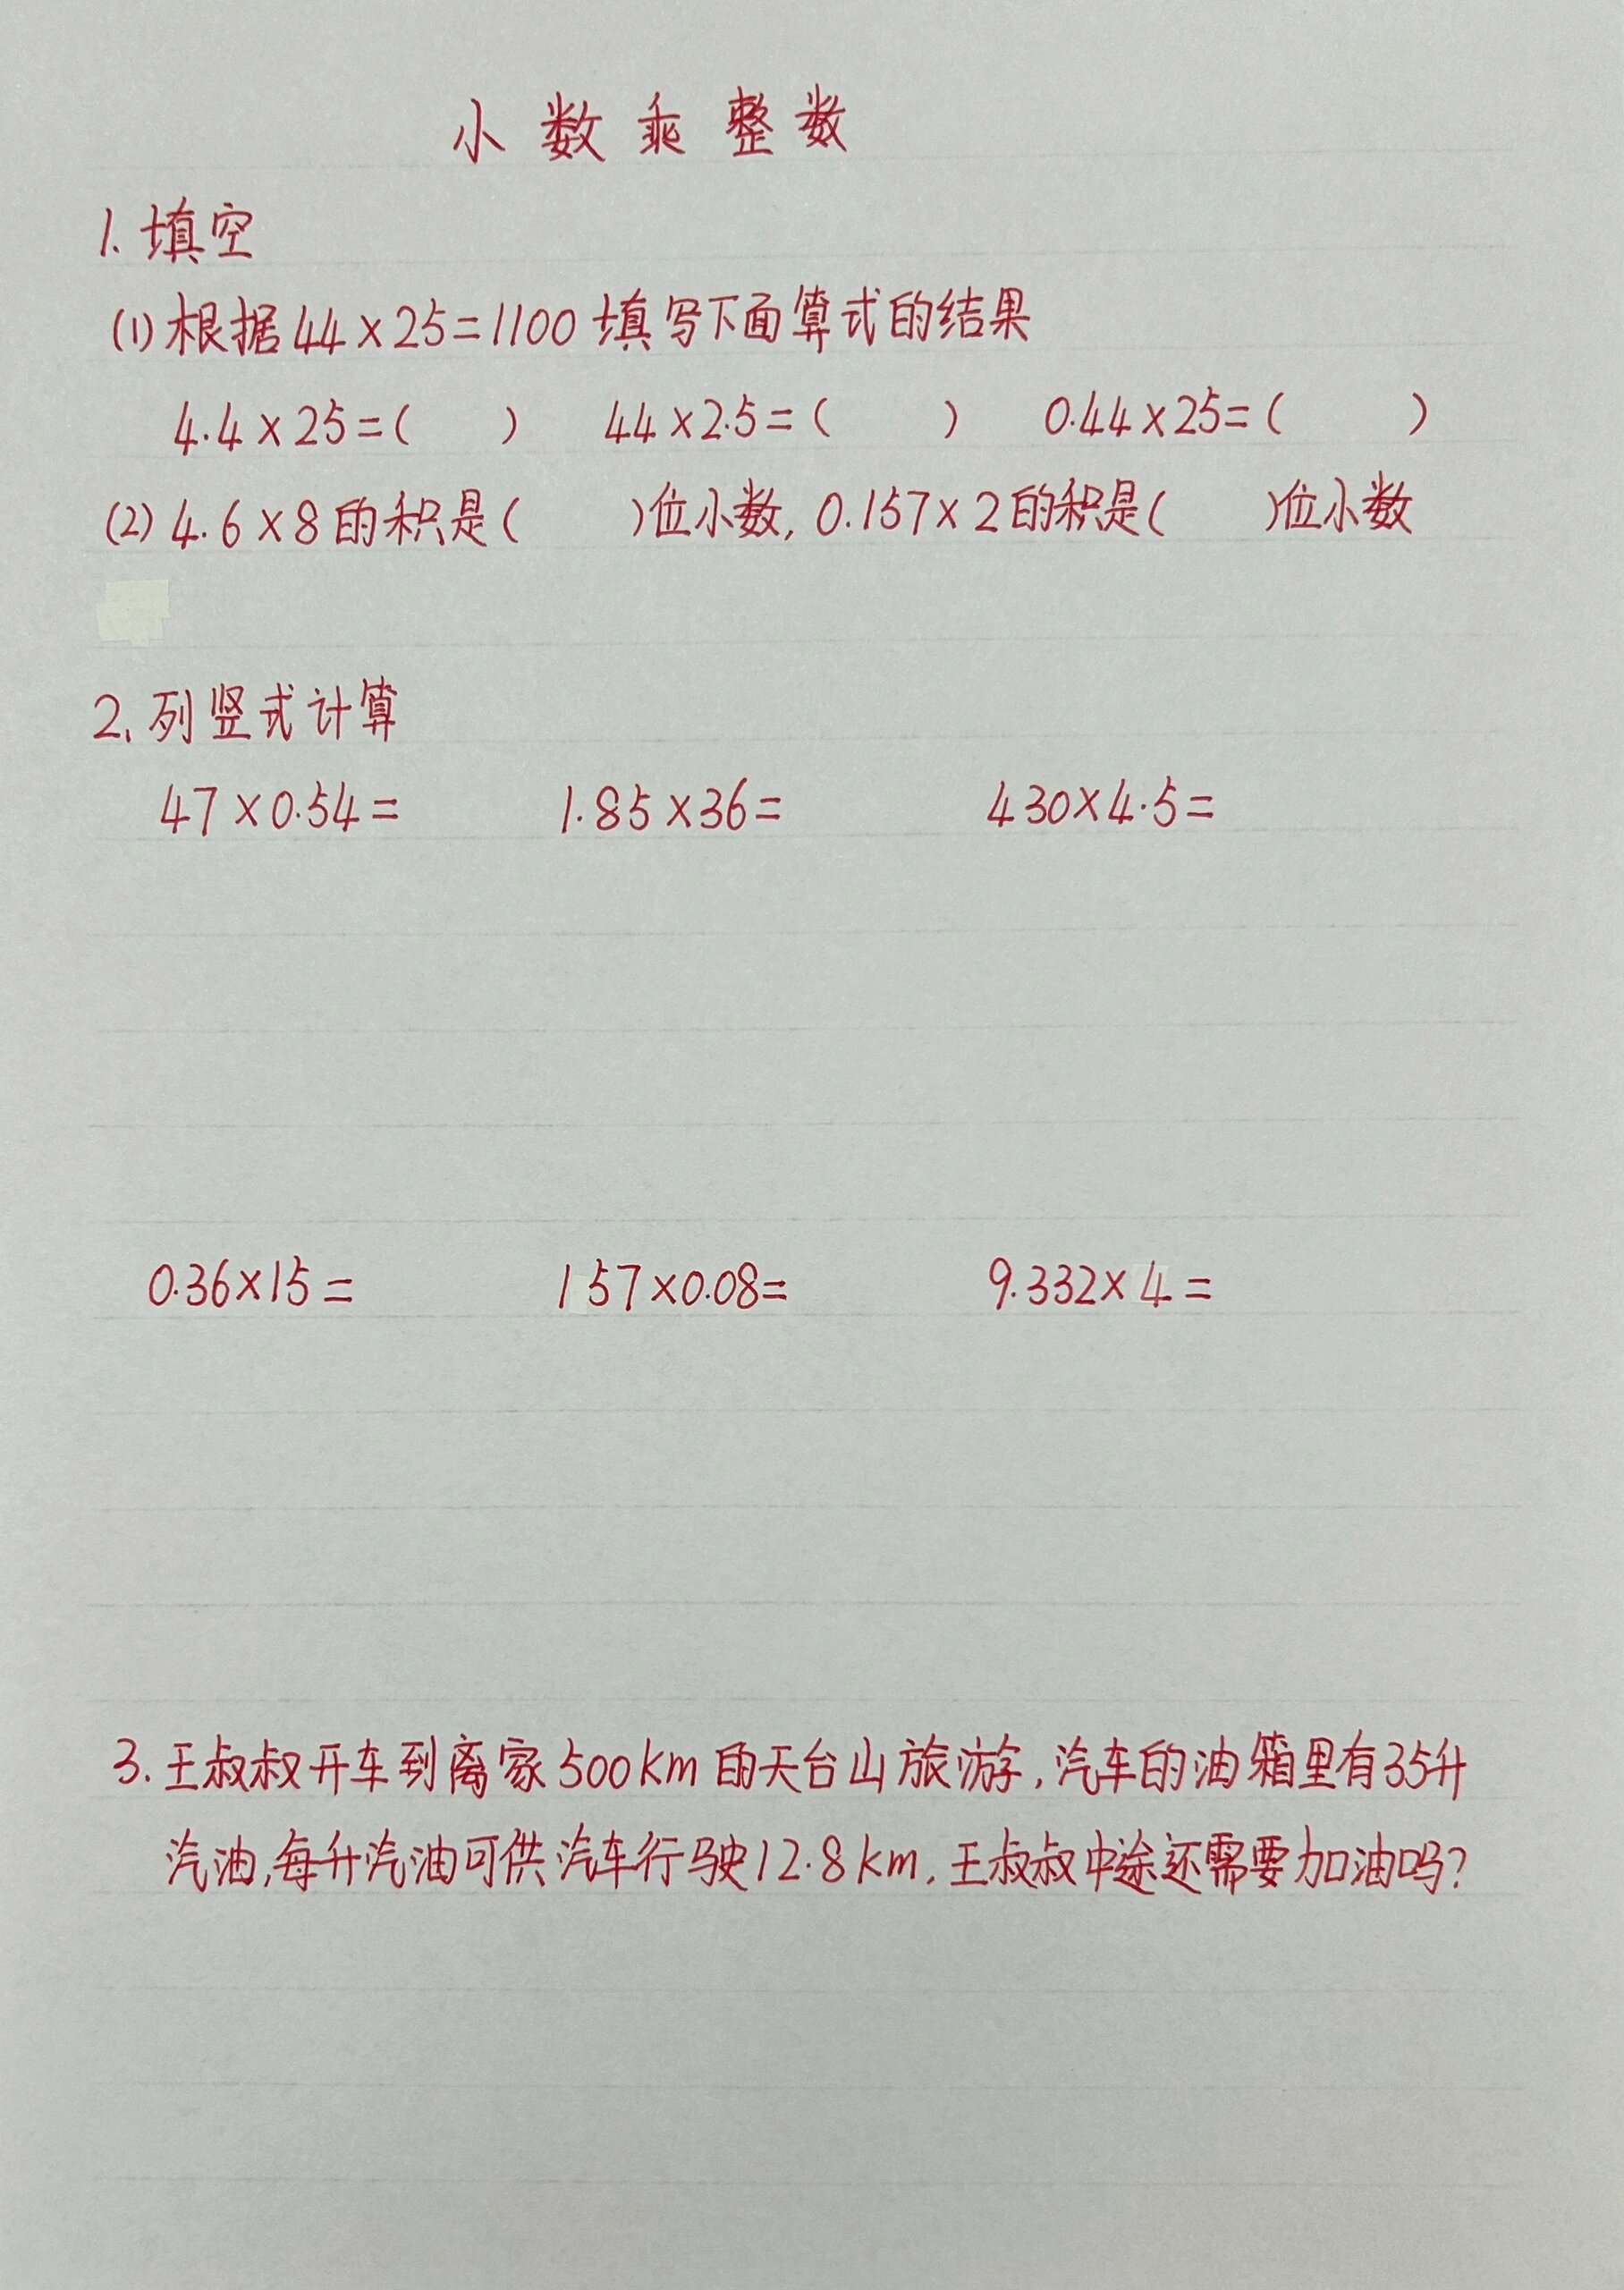 小数乘整数
1. 填空
(1) 根据44×25=1100 填写下面算式的结果
4.4×25=(    )    44×2.5=(    )    0.44×25=(    )
(2) 4.6×8的积是(    )位小数, 0.157×2的积是(    )位小数
2. 列竖式计算
47×0.54=    1.85×36=    430×4.5=
0.36×15=    157×0.08=    9.332×4=
3. 王叔叔开车到离家500km的天台山旅游,汽车的油箱里有35升
汽油,每升汽油可供汽车行驶12.8km,王叔叔中途还需要加油吗?